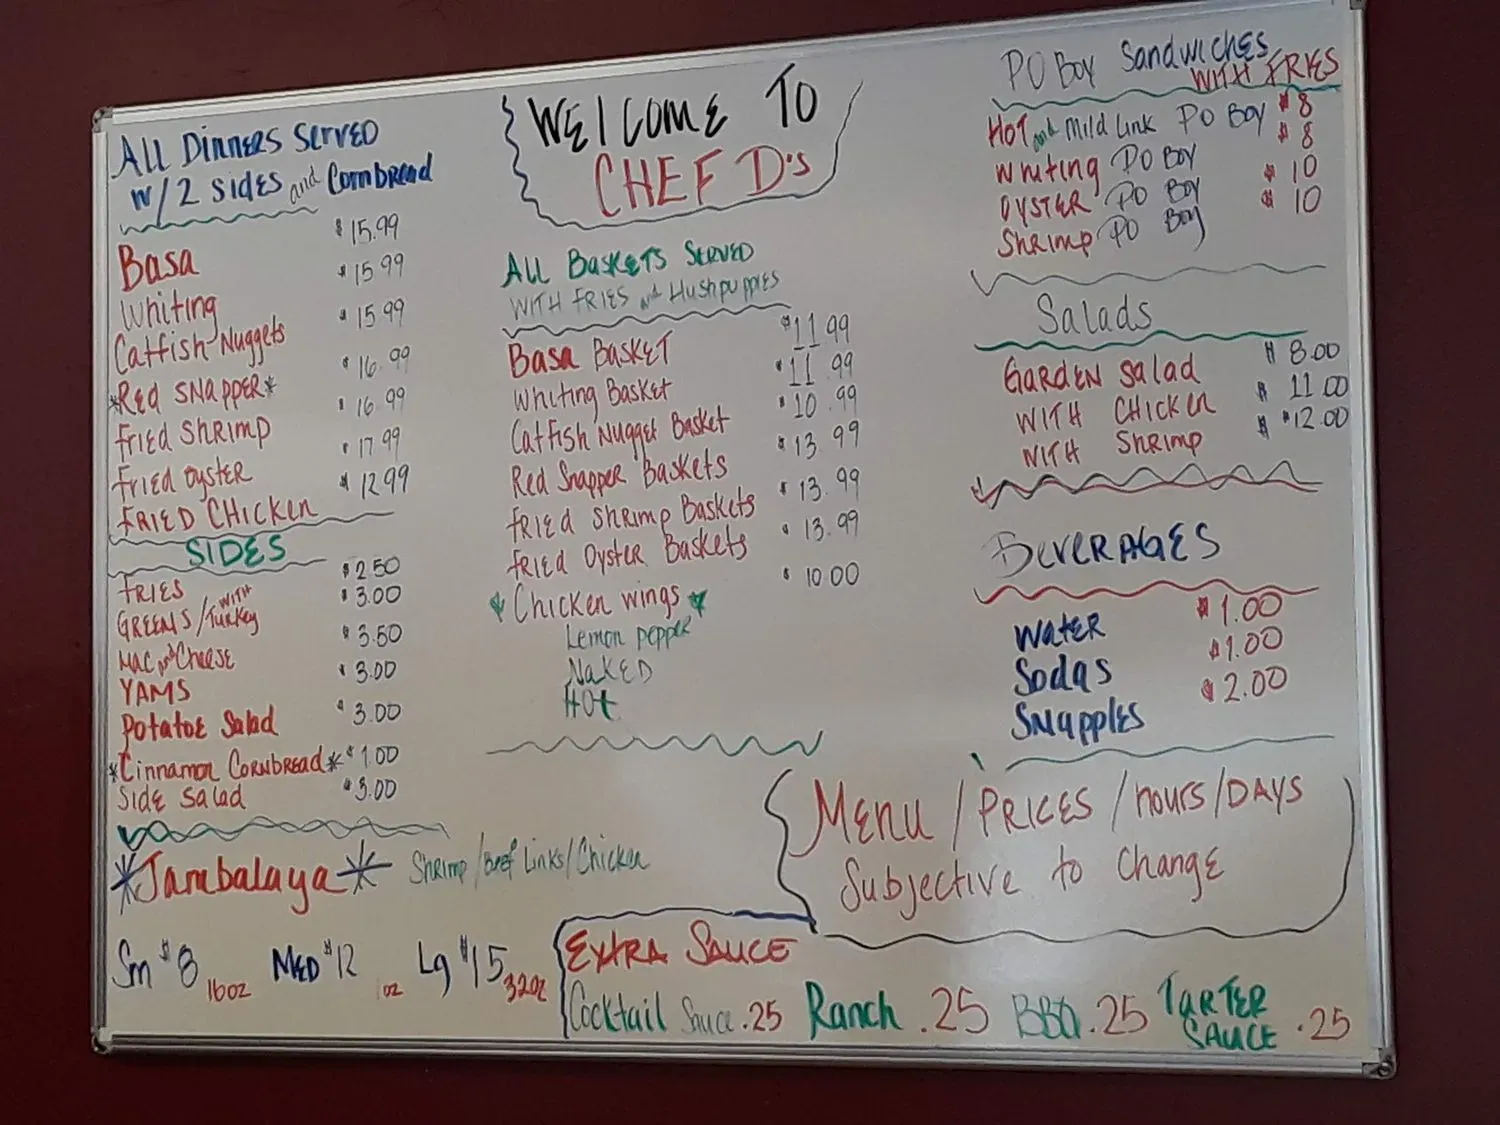 WELCOME TO
CHEF D's
ALL DINNERS SERVED
W/ 2 SIDES and CORNBREAD
BASA $15.99
Whiting $15.99
Catfish Nuggets $15.99
*Red SNAPPER* $16.99
Fried Shrimp $16.99
Fried Oyster $17.99
FRIED CHICKEN $12.99
SIDES
FRIES $2.50
GREENS/WITH TURKEY $3.00
MAC and Cheese $3.50
YAMS $3.00
Potatoe Salad $3.00
*Cinnamon CORNBREAD* $1.00
Side Salad $3.00
*Jambalaya* Shrimp/Beef Links/Chicken
Sm $8 16oz MED $12 oz Lg $15 32oz
ALL BASKETS SERVED
WITH FRIES and Hushpuppies
BASA BASKET $11.99
Whiting Basket $11.99
Catfish Nugget Basket $10.99
Red Snapper Baskets $13.99
Fried Shrimp Baskets $13.99
Fried Oyster Baskets $13.99
Chicken wings $10.00
Lemon pepper
NAKED
HOT
PO BOY SANDWICHES
WITH FRIES
HOT and Mild Link PO BOY $8
Whiting PO BOY $8
OYSTER PO BOY $10
Shrimp PO BOY $10
Salads
GARDEN Salad $8.00
WITH CHICKEN $11.00
WITH Shrimp $12.00
BEVERAGES
Water $1.00
Sodas $1.00
SNapples $2.00
MENU/PRICES/hours/DAYS
Subjective to change
EXTRA SAUCE
Cocktail Sauce .25 Ranch .25 BBQ .25 TARTER SAUCE .25